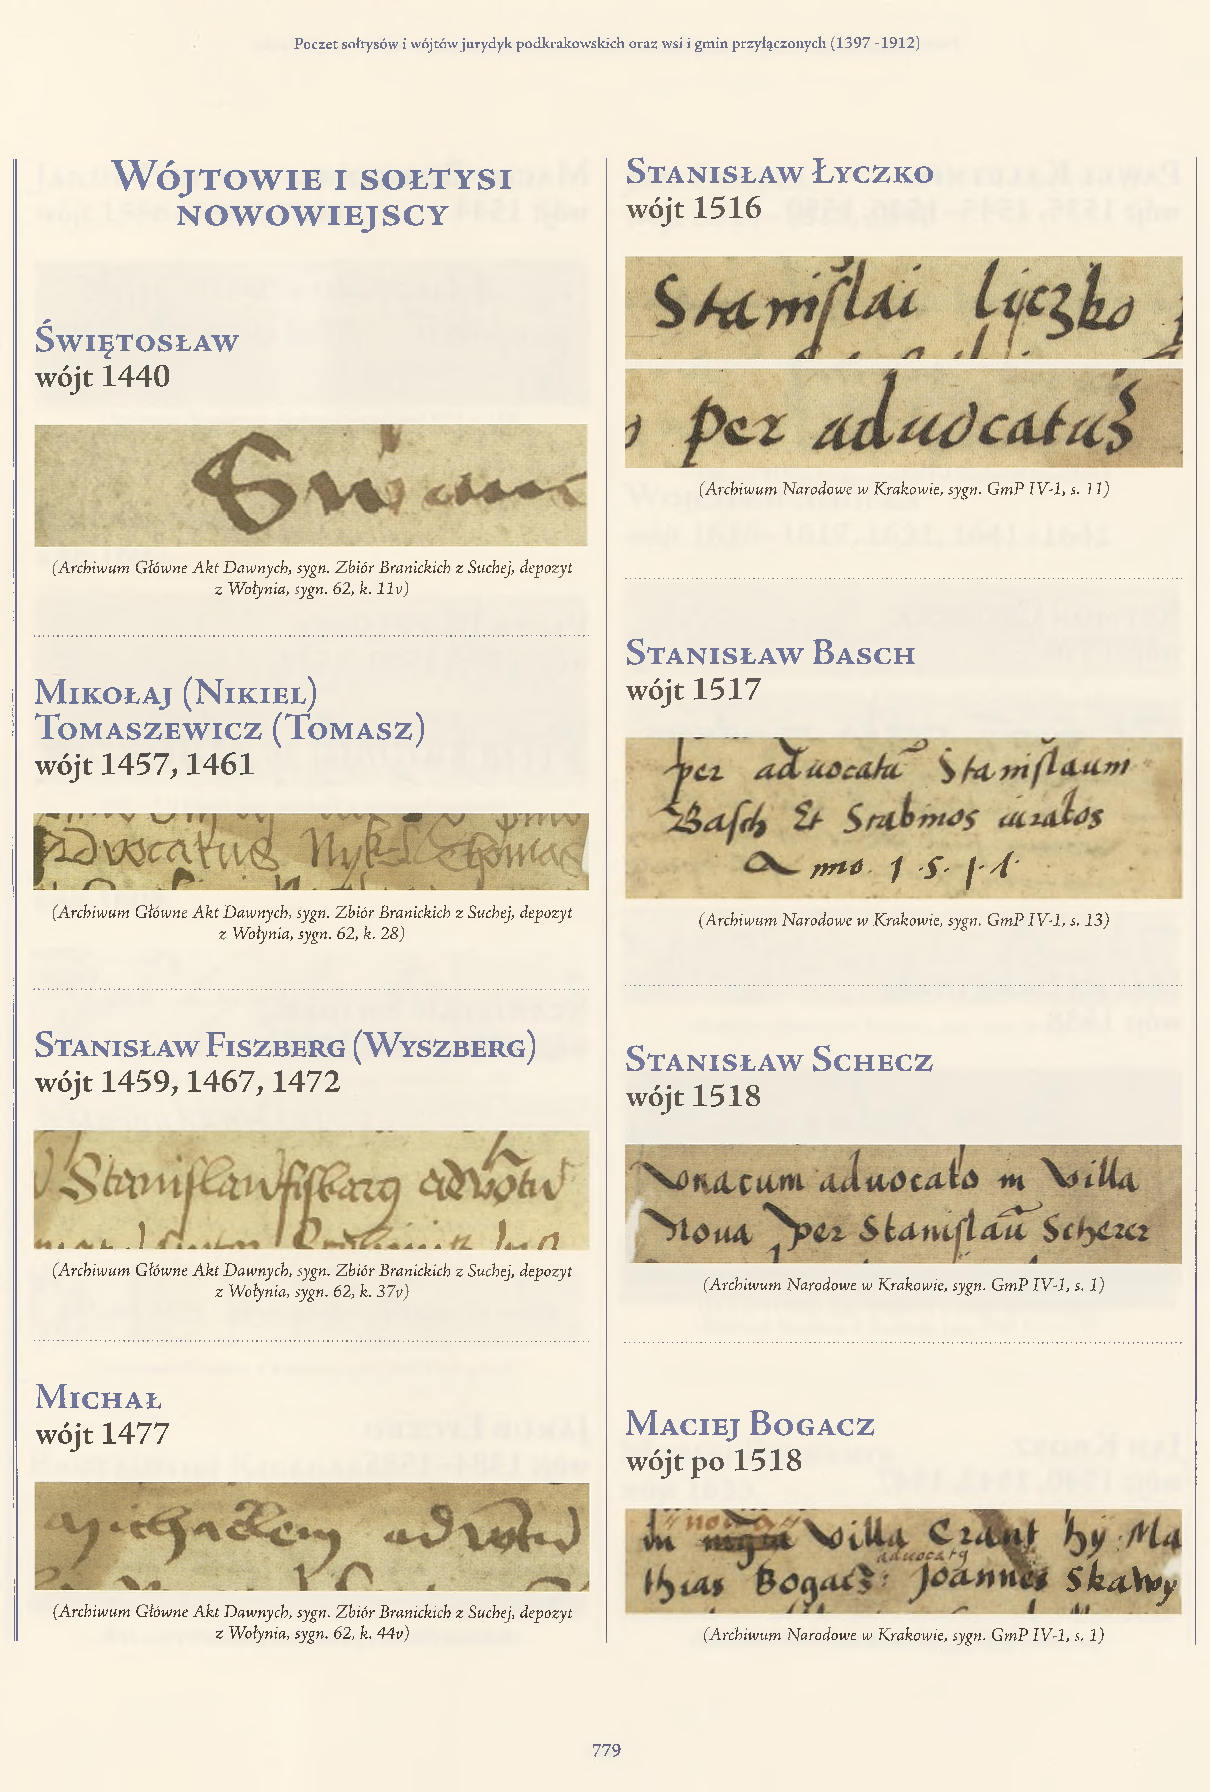 Poczet sołtysów i wójtów jurydyk podkrakowskich oraz wsi i gmin przyłączonych (1397 -1912)
Wójtowie i sołtysi
nowowiejscy
Świętosław
wójt 1440
(Archiwum Główne Akt Dawnych, sygn. Zbiór Branickich z Suchej, depozyt
z Wołynia, sygn. 62, k. 11v)
Mikołaj (Nikiel)
Tomaszewicz (Tomasz)
wójt 1457, 1461
Advocatus Nykel Thomas
(Archiwum Główne Akt Dawnych, sygn. Zbiór Branickich z Suchej, depozyt
z Wołynia, sygn. 62, k. 28)
Stanisław Fiszberg (Wyszberg)
wójt 1459, 1467, 1472
Stanislaw fisberg
(Archiwum Główne Akt Dawnych, sygn. Zbiór Branickich z Suchej, depozyt
z Wołynia, sygn. 62, k. 37v)
Michał
wójt 1477
Michaelem
(Archiwum Główne Akt Dawnych, sygn. Zbiór Branickich z Suchej, depozyt
z Wołynia, sygn. 62, k. 44v)
Stanisław Łyczko
wójt 1516
Stanislai lyczko
per aduocatu
(Archiwum Narodowe w Krakowie, sygn. GmP IV-1, s. 11)
Stanisław Basch
wójt 1517
per aduocatu Stanislaum
Basch Et Scabinos iuratos
Anno
(Archiwum Narodowe w Krakowie, sygn. GmP IV-1, s. 13)
Stanisław Schecz
wójt 1518
aduocato in Villa
Noua per Stanislau
(Archiwum Narodowe w Krakowie, sygn. GmP IV-1, s. 1)
Maciej Bogacz
wójt po 1518
In Villa Erant hy Ma
thias Bogacz Joannes Skawy
(Archiwum Narodowe w Krakowie, sygn. GmP IV-1, s. 1)
779